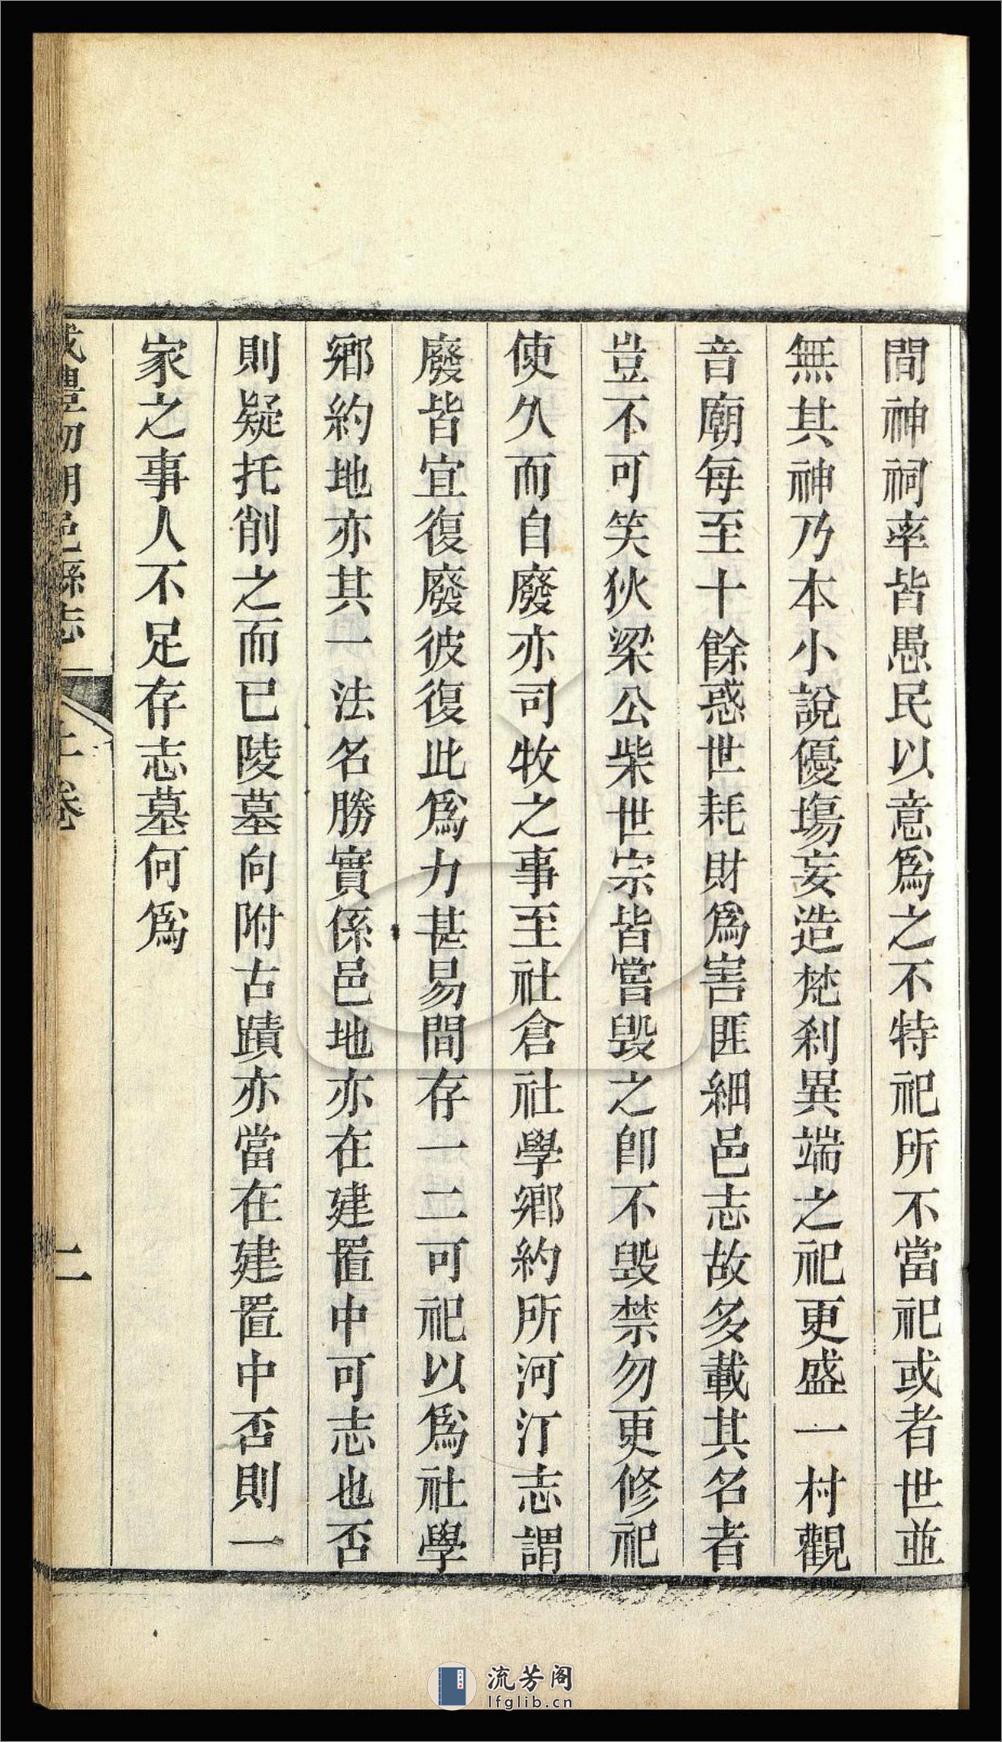 間神祠率皆愚民以意爲之不特祀所不當祀或者世並
無其神乃本小說優塲妄造梵刹異端之祀更盛一村觀
音廟每至十餘惑世耗財爲害匪細邑志故多載其名者
豈不可笑狄梁公柴世宗皆嘗毁之卽不毁禁勿更修祀
使久而自廢亦司牧之事至社倉社學鄉約所河汀志謂
廢皆宜復廢彼復此爲力甚易間存一二可祀以爲社學
鄉約地亦其一法名勝實係邑地亦在建置中可志也否
則疑托削之而已陵墓向附古蹟亦當在建置中否則一
家之事人不足存志墓何爲
咸豐初朝邑縣志 上卷 二
流芳阁
lfglib.cn